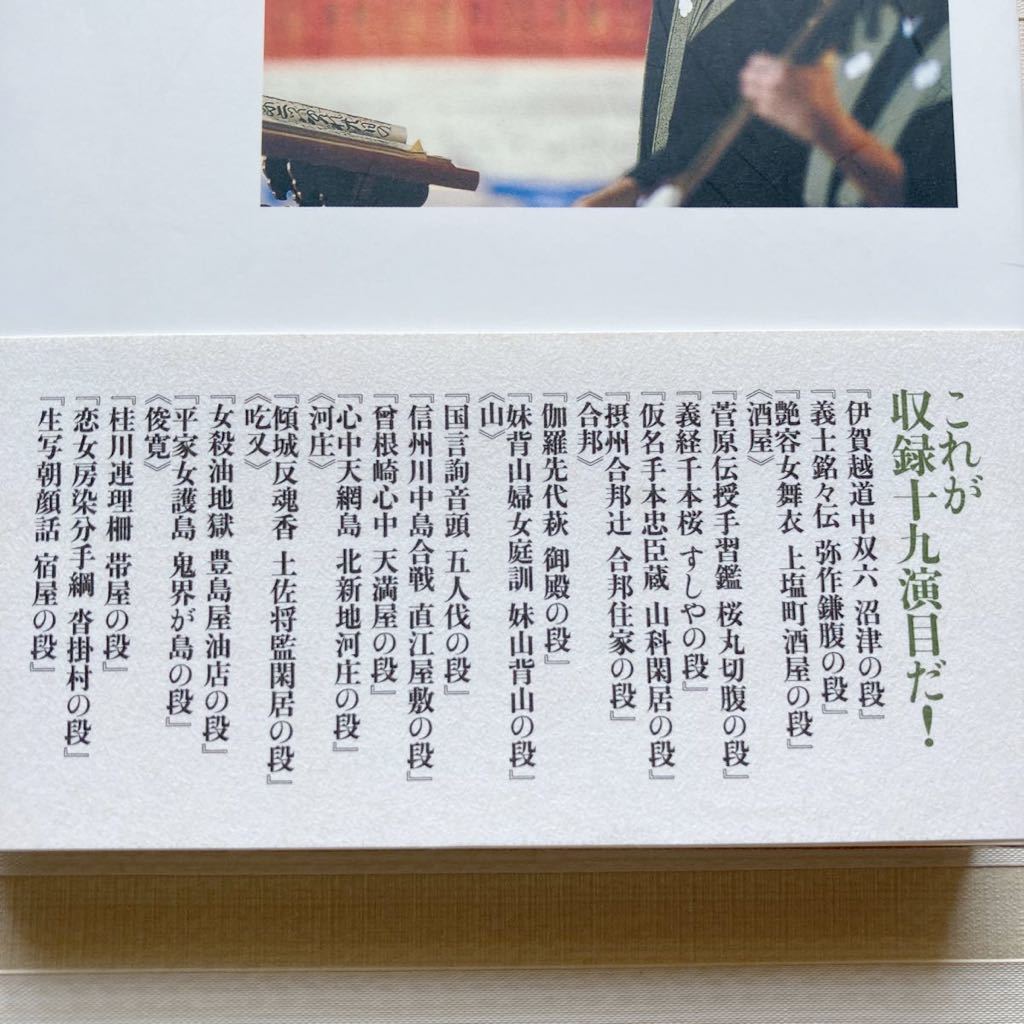 これが
収録十九演目だ！
『伊賀越道中双六 沼津の段』
『義士銘々伝 弥作鎌腹の段』
『艶容女舞衣 上塩町酒屋の段』
〈酒屋〉
『菅原伝授手習鑑 桜丸切腹の段』
『義経千本桜 すしやの段』
『仮名手本忠臣蔵 山科閑居の段』
『摂州合邦辻 合邦住家の段』
〈合邦〉
『伽羅先代萩 御殿の段』
『妹背山婦女庭訓 妹山背山の段』
〈山〉
『国言詢音頭 五人伐の段』
『信州川中島合戦 直江屋敷の段』
『曾根崎心中 天満屋の段』
『心中天網島 北新地河庄の段』
〈河庄〉
『傾城反魂香 土佐将監閑居の段』
〈吃又〉
『女殺油地獄 豊島屋油店の段』
『平家女護島 鬼界が島の段』
〈俊寛〉
『桂川連理柵 帯屋の段』
『恋女房染分手綱 沓掛村の段』
『生写朝顔話 宿屋の段』